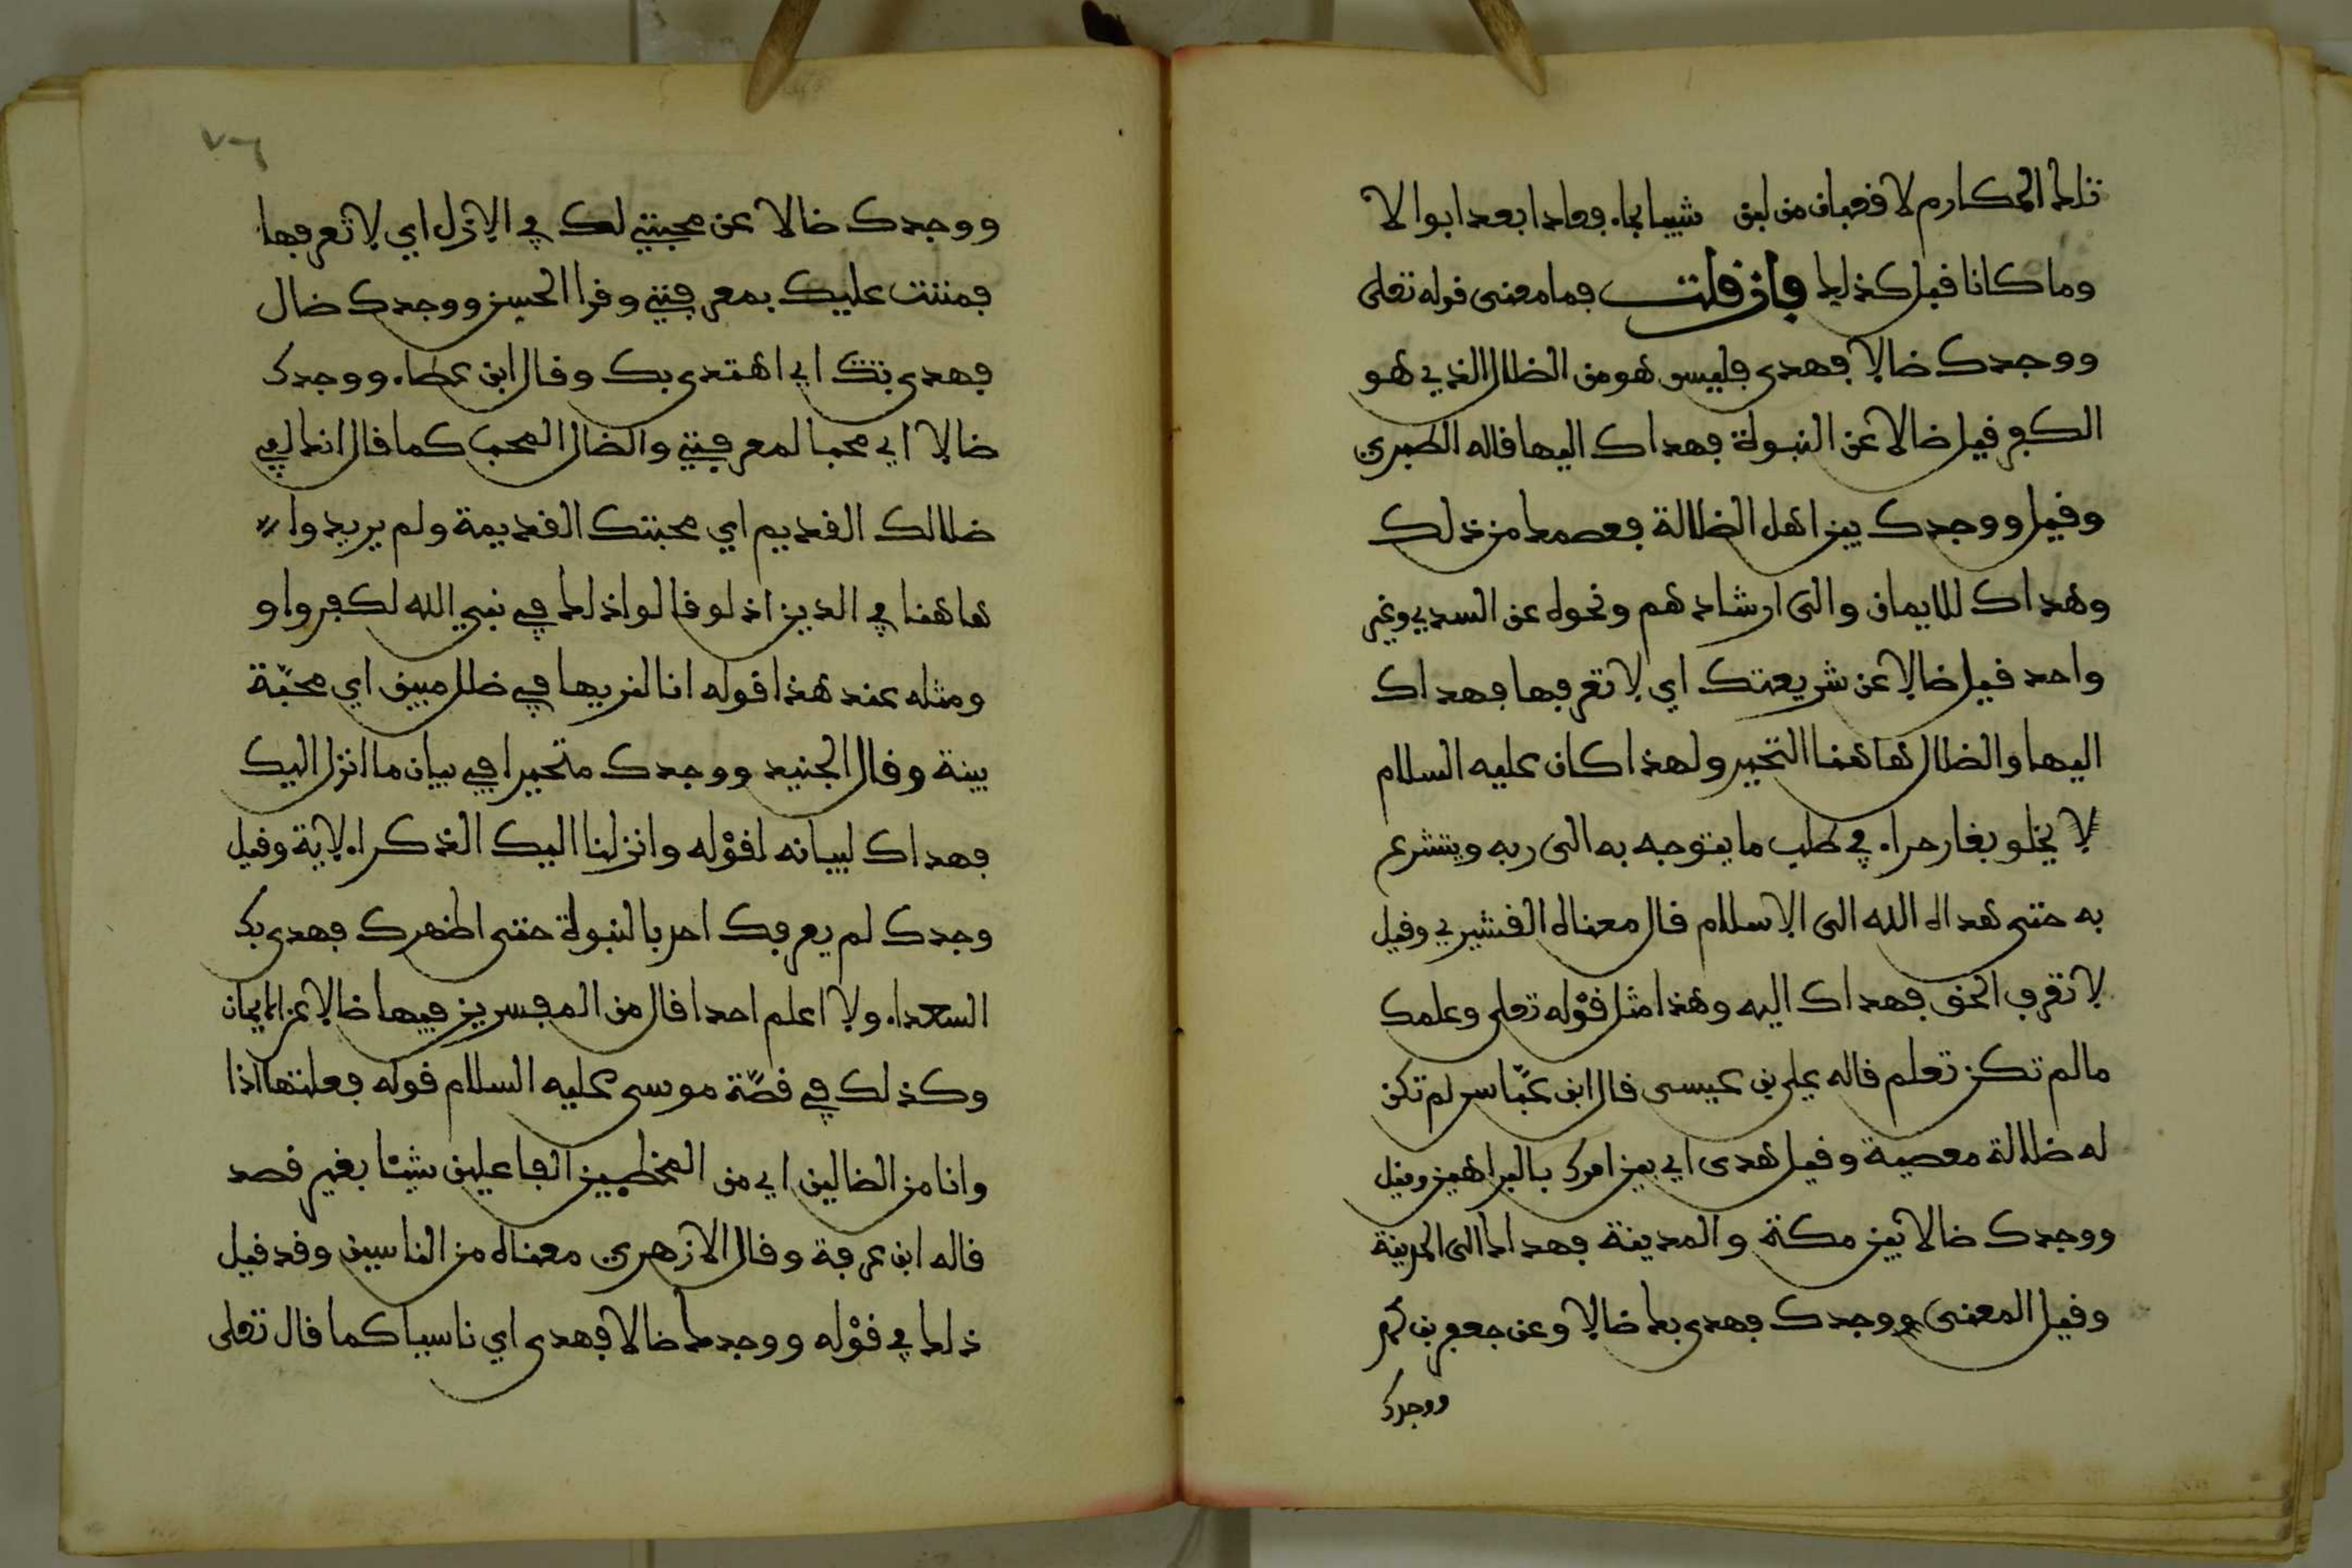 تلك المكارم لا قعبان من لبن شيبا بماء فعادا بعد ابوالا
وما كانا قبل كذلك فان قلت فما معنى قوله تعلى
ووجدك ضالا فهدى فليس هو من الظلال الذي هو
الكفر فيل ضالا عن النبوة فهداك اليها قاله الطبري
وقيل ووجدك بين اهل الظلالة فعصمك من ذلك
وهداك للايمان والى ارشادهم ونحوه عن السدي وغير
واحد قيل ضالا عن شريعتك اي لا تعرفها فهداك
اليها والظلال هاهنا التحير ولهذا كان عليه السلام
لا يخلو بغار حراء في طلب ما يتوجه به الى ربه ويتشرع
به حتى هداه الله الى الاسلام قال معناه القشيري وقيل
لا تعرف الحق فهداك اليه وهذا مثل قوله تعلى وعلمك
ما لم تكن تعلم قاله علي بن عيسى قال ابن عباس لم تكن
له ظلالة معصية وقيل هدى اي بين امرك بالبراهين وقيل
ووجدك ضالا بين مكة والمدينة فهداك الى المدينة
وقيل المعنى ووجدك فهدى بك ضالا وعن جعفر بن محمد
ووجدك
٧٦
ووجدك ضالا عن محبتي لك في الازل اي لا تعرفها
فمننت عليك بمعرفتي وقرا الحسن ووجدك ضال
فهدي بك اي اهتدى بك وقال ابن عطاء ووجدك
ضالا اي محبا لمعرفتي والضال المحب كما قال انك لفي
ضلالك القديم اي محبتك القديمة ولم يريدوا
هاهنا في الدين اذ لو قالوا ذلك في نبي الله لكفروا و
ومثله عند هذا قوله انا لنريها في ظلل مبين اي محبة
بينة وقال الجنيد ووجدك متحيرا في بيان ما انزل اليك
فهداك لبيانه لقوله وانزلنا اليك الذكر الاية وقيل
وجدك لم يعرفك احد بالنبوة حتى اظهرك فهدى بك
السعداء ولا اعلم احدا قال من المفسرين فيها ضالا عن الايمان
وكذلك في قصة موسى عليه السلام قوله فعلتها اذا
وانا من الضالين اي من المخطيين الفاعلين شيئا بغير قصد
قاله ابن عرفة وقال الازهري معناه من الناسين وقد قيل
ذلك في قوله ووجدك ضالا فهدى اي ناسيا كما قال تعلى